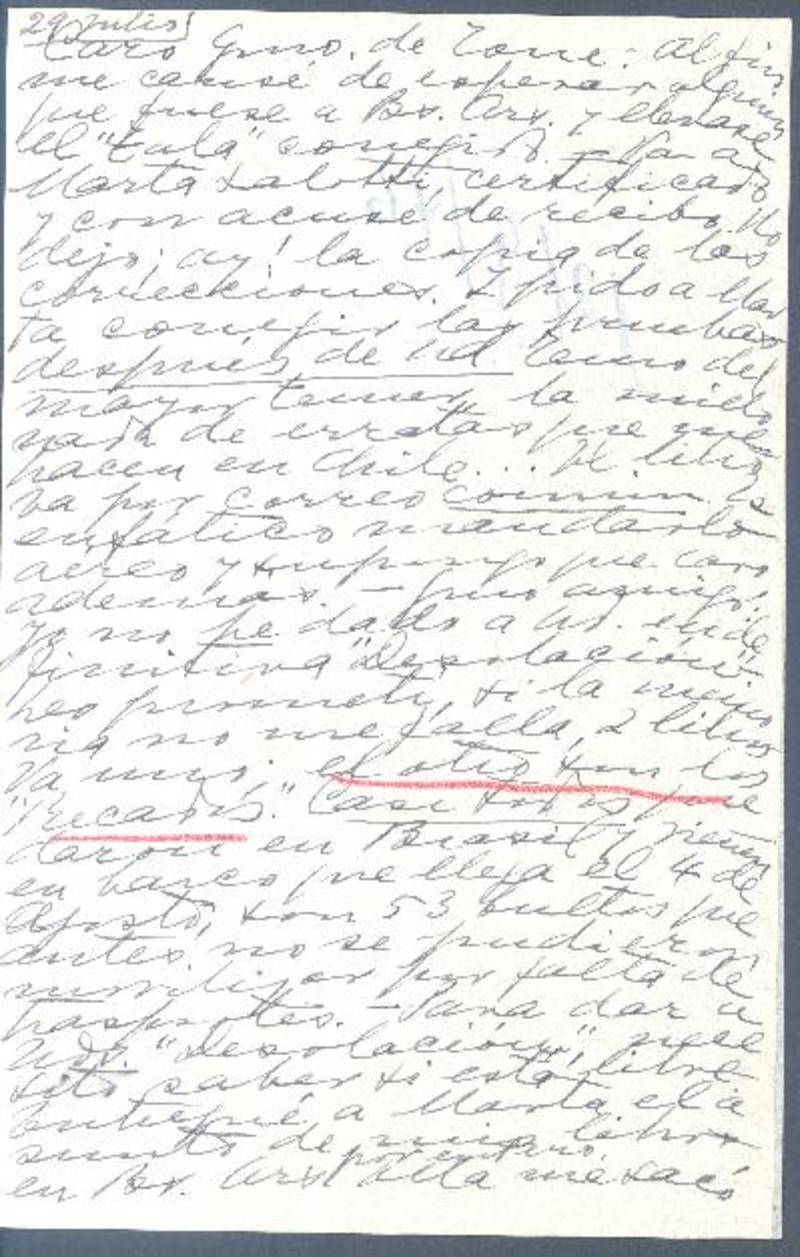 29 Julio
Caro Gmo. de Torre: Al fin
me cansé de esperar alguien
que fuese a Bs. Ars. y llevase
el "Tala" corregido. - Va a
Marta Salotti, certificado
y con acuse de recibo. No
dejo, ay! la copia de las
correcciones. Y pido a Mar
ta corregir las pruebas
después de Ud. Temo del
mayor temer, la
de erratas que me
hacen en Chile... El libro
va por correo común. Es
enfático mandarlo
aéreo y supongo que caro
además. - Pero amigo,
yo no he dado a Uds. en de
finitiva "Desolación".
Les prometí, si la memo
ria no me falla, 2 libros
Va uno; el otro son los
"Recados". Casi todos que
daron en Brasil y vienen
en barco que llega el 4 de
Agosto, son 53 bultos que
antes no se pudieron
movilizar por falta de
trasportes. - Para dar a
Uds. "Desolación", nece
sito saber si está libre
Entregué a Marta el a
sunto de mis libros
en Bs. Ars. por entero. Ella me sacó